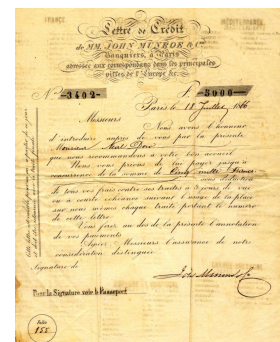 Lettre de Crédit
de MM. JOHN MUNROE & Cie
Banquiers, à Paris
adressée aux correspondans dans les principales
villes de l'Europe &c.
No. 3402 F. 5000
Paris le 18 Juillet 1866
Messieurs
Nous avons l'honneur
d'introduire auprès de vous par la présente
Monsieur Neal Dow
que nous recommandons à votre bon accueil
Nous vous prions de lui payer jusqu'à
concurrence de la somme de Cinq mille Francs
sous déduction
de tous vos frais contre ses traites à jours de vue
ou à courte échéance suivant l'usage de la place
sur nous même chaque traite portant le numéro
de cette lettre
Vous ferez au dos de la présente l'annotation
de vos paiements
Agréez Messieurs l'assurance de notre
considération distinguée
Signature de
John Munroe & Co
Pour la Signature voir le Passeport
155